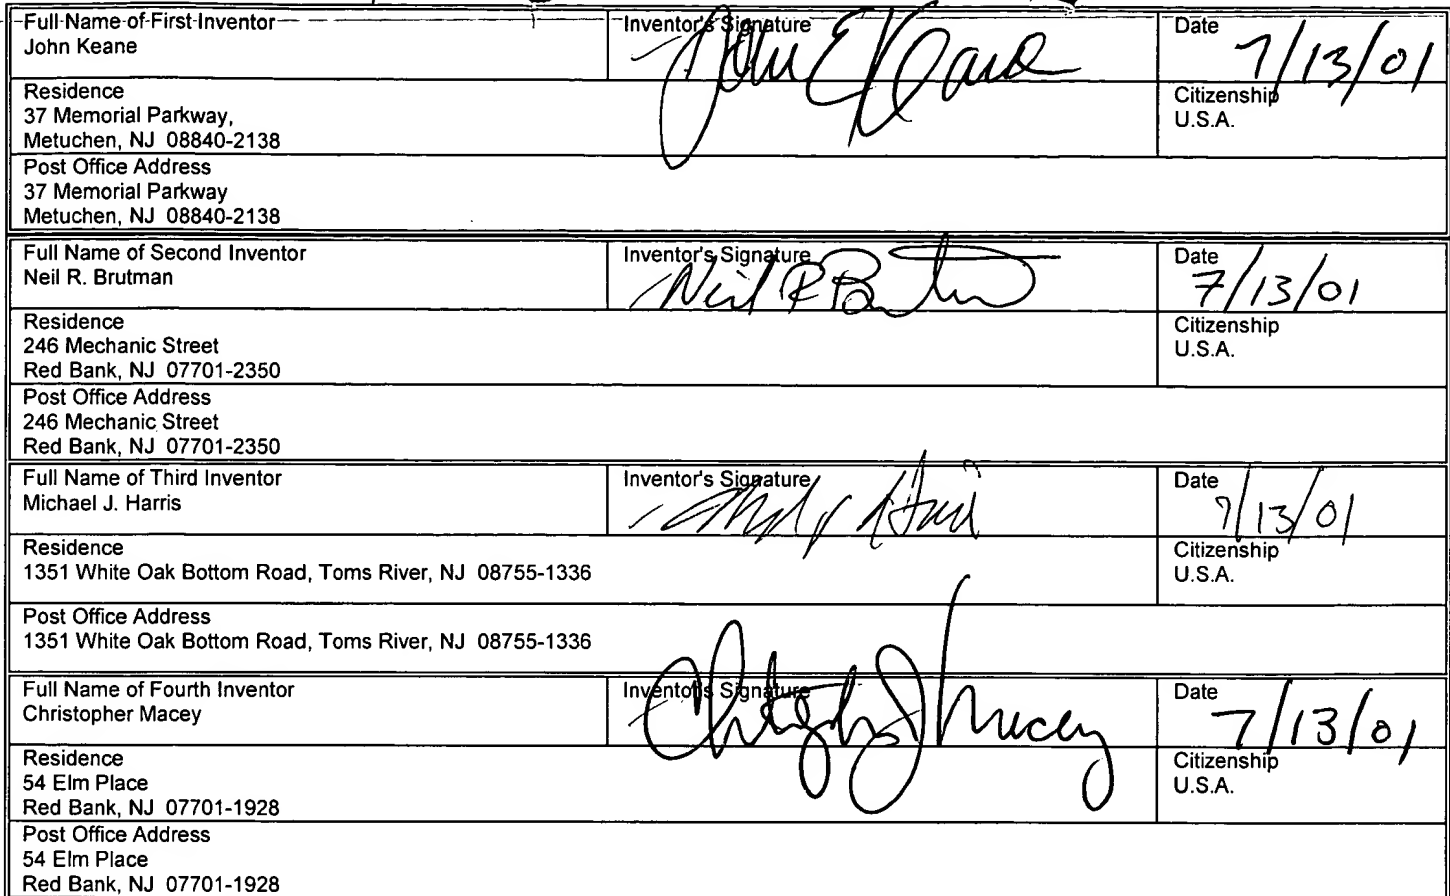 Full Name of First Inventor
John Keane
Inventor's Signature
John E Keane
Date
7/13/01
Residence
37 Memorial Parkway,
Metuchen, NJ 08840-2138
Citizenship
U.S.A.
Post Office Address
37 Memorial Parkway
Metuchen, NJ 08840-2138
Full Name of Second Inventor
Neil R. Brutman
Inventor's Signature
Neil R
Date
7/13/01
Residence
246 Mechanic Street
Red Bank, NJ 07701-2350
Citizenship
U.S.A.
Post Office Address
246 Mechanic Street
Red Bank, NJ 07701-2350
Full Name of Third Inventor
Michael J. Harris
Inventor's Signature
Date
7/13/01
Residence
1351 White Oak Bottom Road, Toms River, NJ 08755-1336
Citizenship
U.S.A.
Post Office Address
1351 White Oak Bottom Road, Toms River, NJ 08755-1336
Full Name of Fourth Inventor
Christopher Macey
Inventor's Signature
Christopher J Macey
Date
7/13/01
Residence
54 Elm Place
Red Bank, NJ 07701-1928
Citizenship
U.S.A.
Post Office Address
54 Elm Place
Red Bank, NJ 07701-1928